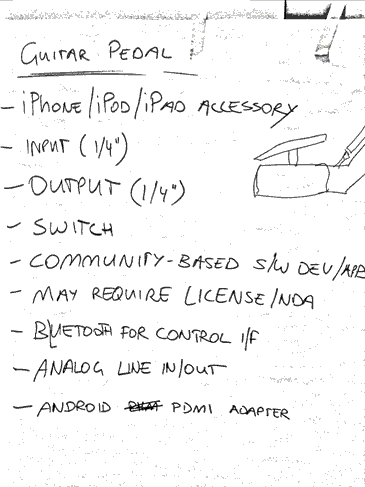 GUITAR PEDAL
- iPHONE/iPOD/iPAD ACCESSORY
- INPUT (1/4")
- OUTPUT (1/4")
- SWITCH
- COMMUNITY-BASED S/W DEV/APP
- MAY REQUIRE LICENSE/NDA
- BLUETOOTH FOR CONTROL I/F
- ANALOG LINE IN/OUT
- ANDROID PDMI ADAPTER